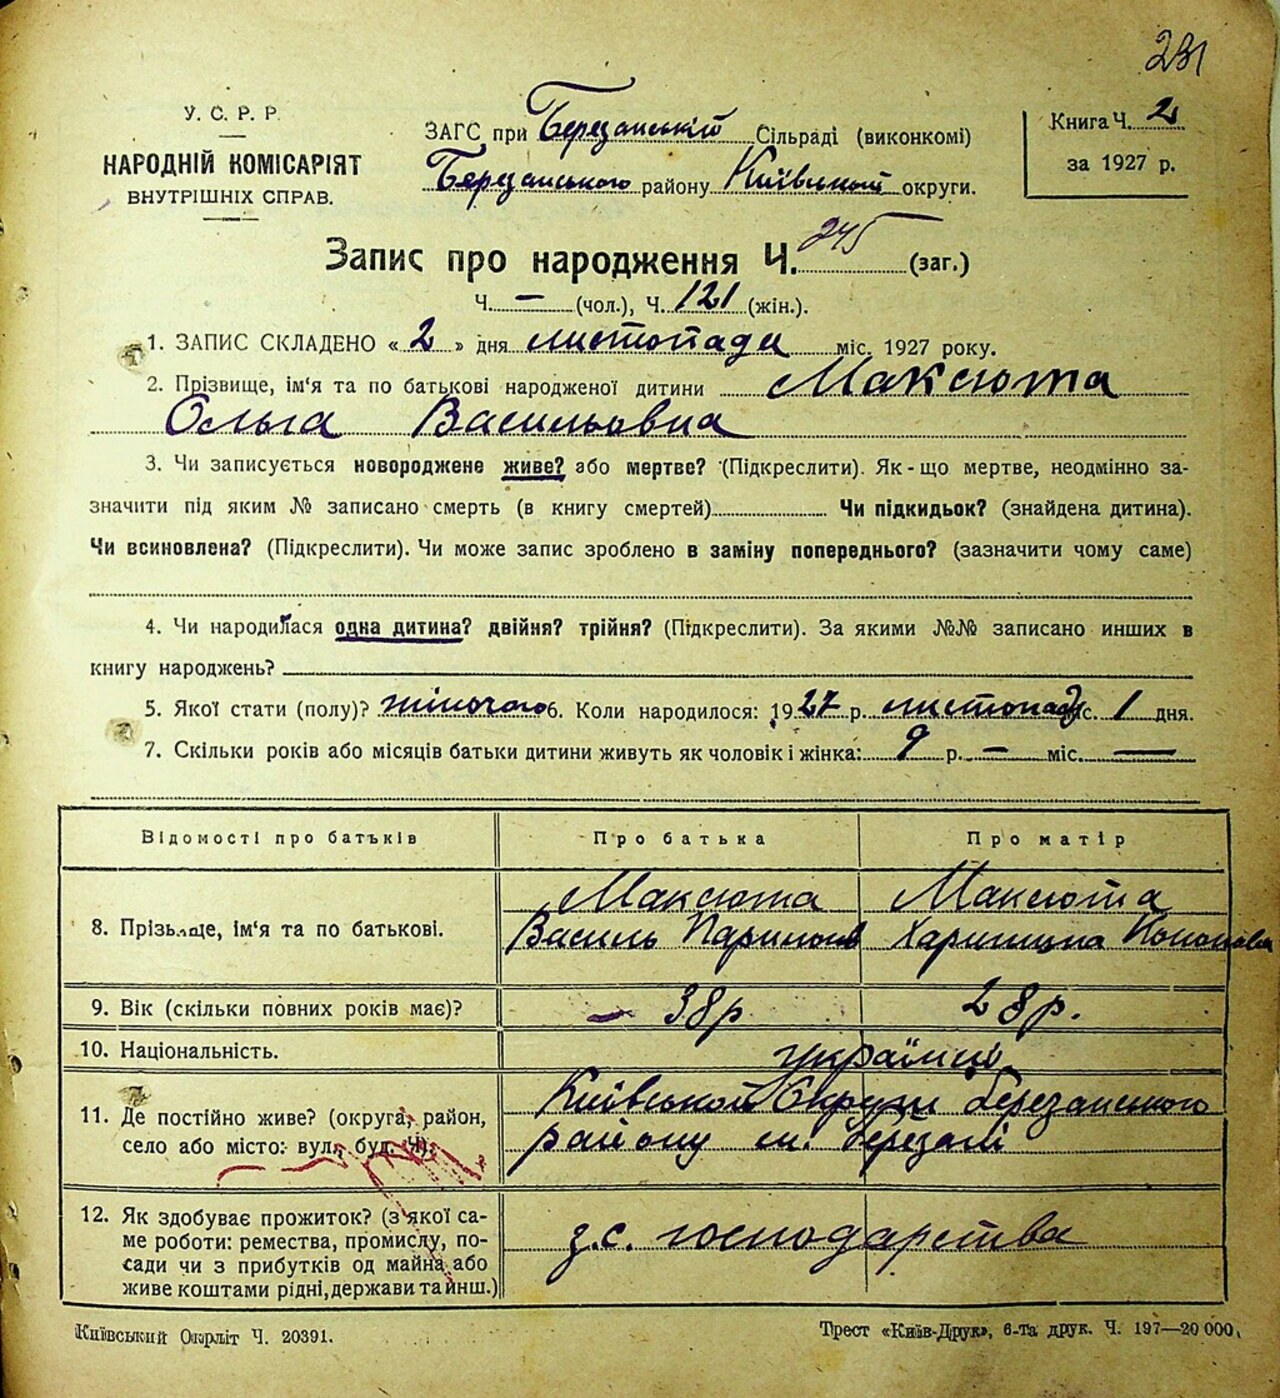 231
У. С. Р. Р.
НАРОДНІЙ КОМІСАРІЯТ
ВНУТРІШНІХ СПРАВ.
ЗАГС при Березанській Сільраді (виконкомі)
Березанського району Київської округи.
Книга Ч. 2
за 1927 р.
Запис про народження Ч. 245 (заг.)
Ч. — (чол.), Ч. 121 (жін.).
1. ЗАПИС СКЛАДЕНО « 2 » дня листопада міс. 1927 року.
2. Прізвище, ім'я та по батькові народженої дитини Максюта
Ольга Васильовна
3. Чи записується новороджене живе? або мертве? (Підкреслити). Як-що мертве, неодмінно за-
значити під яким № записано смерть (в книгу смертей) Чи підкидьок? (знайдена дитина).
Чи всиновлена? (Підкреслити). Чи може запис зроблено в заміну попереднього? (зазначити чому саме)
4. Чи народилася одна дитина? двійня? трійня? (Підкреслити). За якими №№ записано инших в
книгу народжень?
5. Якої стати (полу)? жіночого 6. Коли народилося: 1927 р. листопада міс. 1 дня.
7. Скільки років або місяців батьки дитини живуть як чоловік і жінка: 9 р. — міс. —
Відомості про батьків Про батька Про матір
8. Прізвище, ім'я та по батькові.
Максюта
Василь
Максюта
9. Вік (скільки повних років має)? — 38р 28р.
10. Національність. українці
11. Де постійно живе? (округа, район,
село або місто: вул., буд. Ч).
Київської Округи Березанського
району м. Березані
12. Як здобуває прожиток? (з якої са-
ме роботи: ремества, промислу, по-
сади чи з прибутків од майна або
живе коштами рідні, держави та инш.)
з.с. господарства
Київський Окрліт Ч. 20391.
Трест «Київ-Друк», 6-та друк. Ч. 197—20 000.